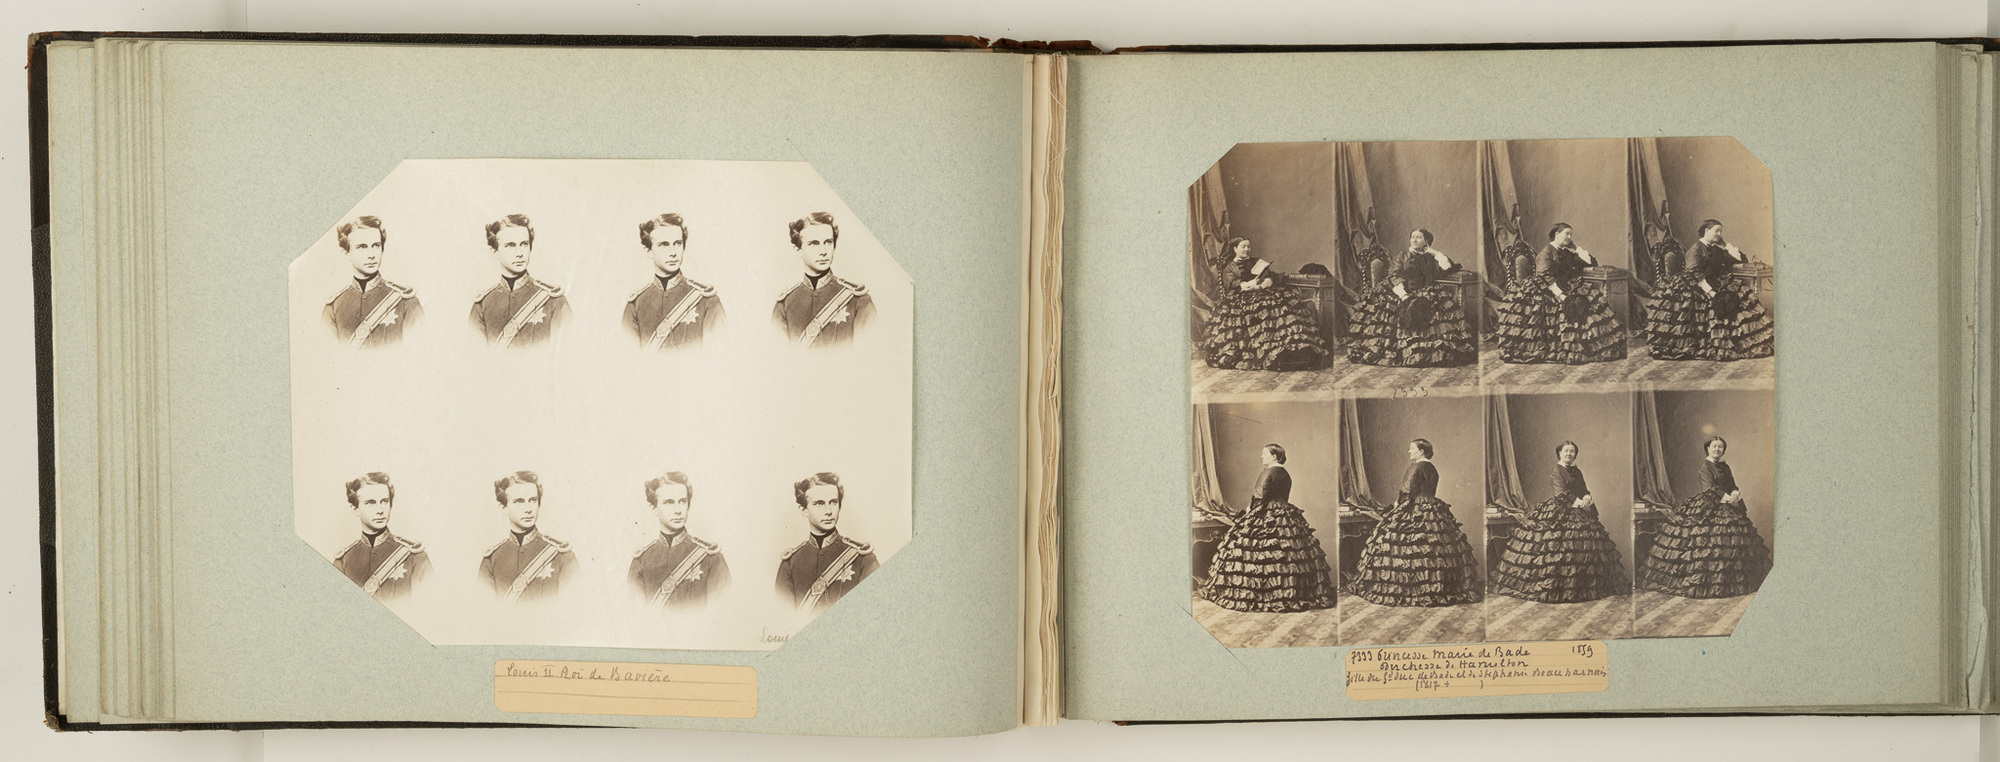 Louis
Louis II Roi de Bavière
7333
7333 Princesse Marie de Bade 1859
Duchesse de Hamilton
fille du Gd Duc de Bade et de Stephanie Beauharnais
(1817 + )